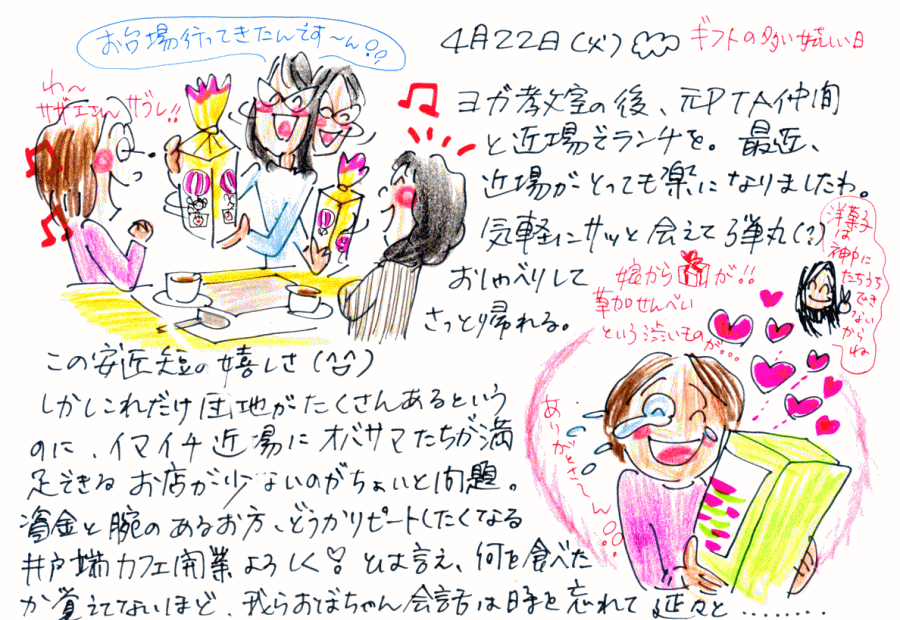 お台場行ってきたんです〜ん!?
4月22日(火)
ギフトの多い嬉しい日
わ〜
サザエさんサブレ!!
ヨガ教室の後、元PTA仲間
と近場でランチを。最近、
近場がとっても楽になりましたわ。
気軽にサッと会えて弾丸(?)
おしゃべりして
さっとり帰れる。
洋菓子
は
神戸に
たちうち
でき
ない
から
ね
娘から が!!
草加せんべい
という渋いものが...
この安近短の嬉しさ(^^)
しかしこれだけ団地がたくさんあるという
のに、イマイチ近場にオバサマたちが満
足できるお店が少ないのがちょいと問題。
資金と腕のあるお方、どうかリピートしたくなる
井戸端カフェ開業よろしく♡とは言え、何を食べた
か覚えてないほど、我らおばちゃん会話は時を忘れて延々と........
ありがとさ〜ん!!